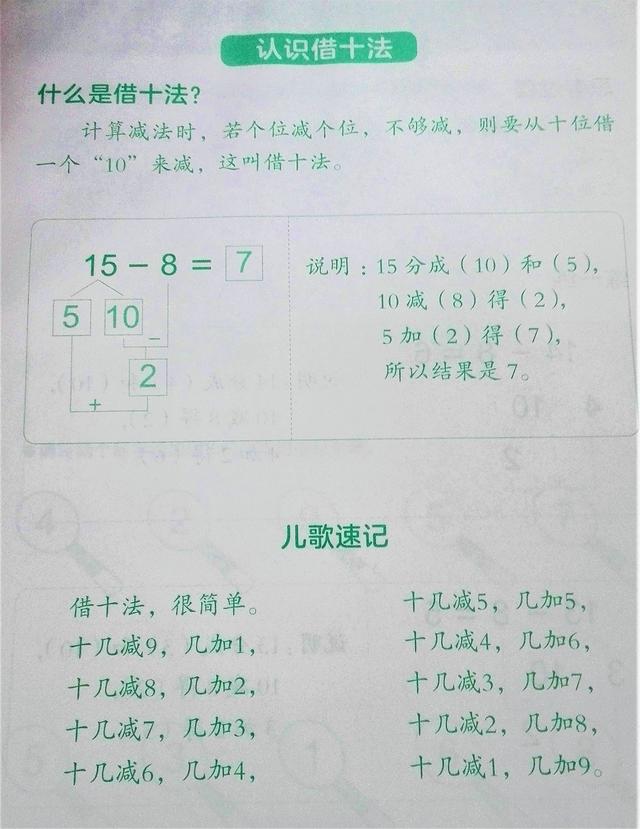 认识借十法
什么是借十法?
计算减法时，若个位减个位，不够减，则要从十位借
一个“10”来减，这叫借十法。
15 - 8 = 7
5 10
-
2
+
说明：15分成（10）和（5），
10减（8）得（2），
5加（2）得（7），
所以结果是7。
儿歌速记
借十法，很简单。
十几减9，几加1，
十几减8，几加2，
十几减7，几加3，
十几减6，几加4，
十几减5，几加5，
十几减4，几加6，
十几减3，几加7，
十几减2，几加8，
十几减1，几加9。